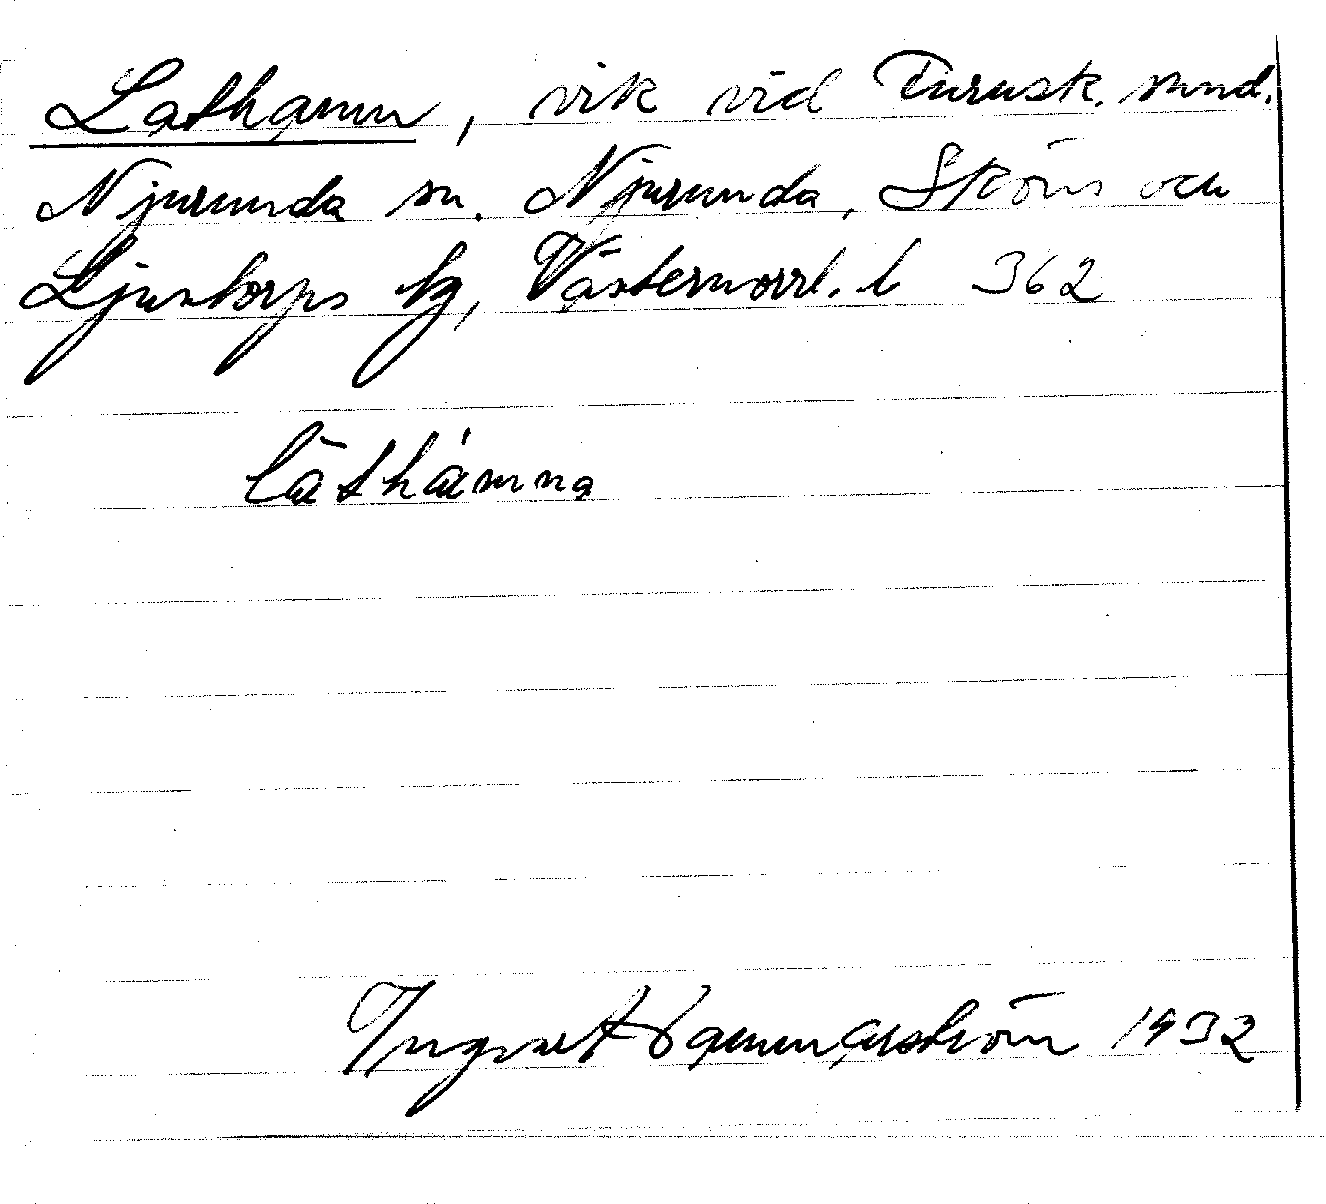 Lathamn, vik vid Furusk. sund.
Njurunda sn. Njurunda, Sköns och
Ljustorps tg, Västernorrl. l 362
låthàmna
Ingvar Hammarström 1932